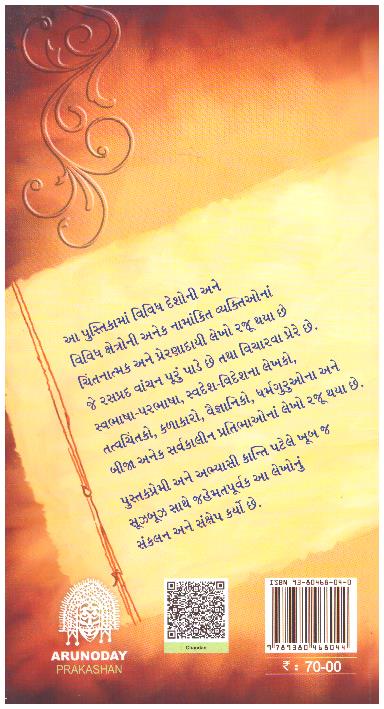 આ પુસ્તિકામાં વિવિધ દેશોની અને
વિવિધ ક્ષેત્રોની અનેક નામાંકિત વ્યક્તિઓનાં
ચિંતનાત્મક અને પ્રેરણાદાયી લેખો રજૂ થયા છે
જે રસપ્રદ વાંચન પૂરું પાડે છે તથા વિચારવા પ્રેરે છે.
સ્વભાષા-પરભાષા, સ્વદેશ-વિદેશના લેખકો,
તત્વચિંતકો, કળાકારો, વૈજ્ઞાનિકો, ધર્મગુરુઓના અને
બીજા અનેક સર્વકાલીન પ્રતિભાઓનાં લેખો રજૂ થયા છે.
પુસ્તકપ્રેમી અને અભ્યાસી કાન્તિ પટેલે ખૂબ જ
સૂઝબૂઝ સાથે જહેમતપૂર્વક આ લેખોનું
સંકલન અને સંક્ષેપ કર્યો છે.
ARUNODAY
PRAKASHAN
Chandan
ISBN 93-80468-04-0
9789380468044
₹ : 70-00